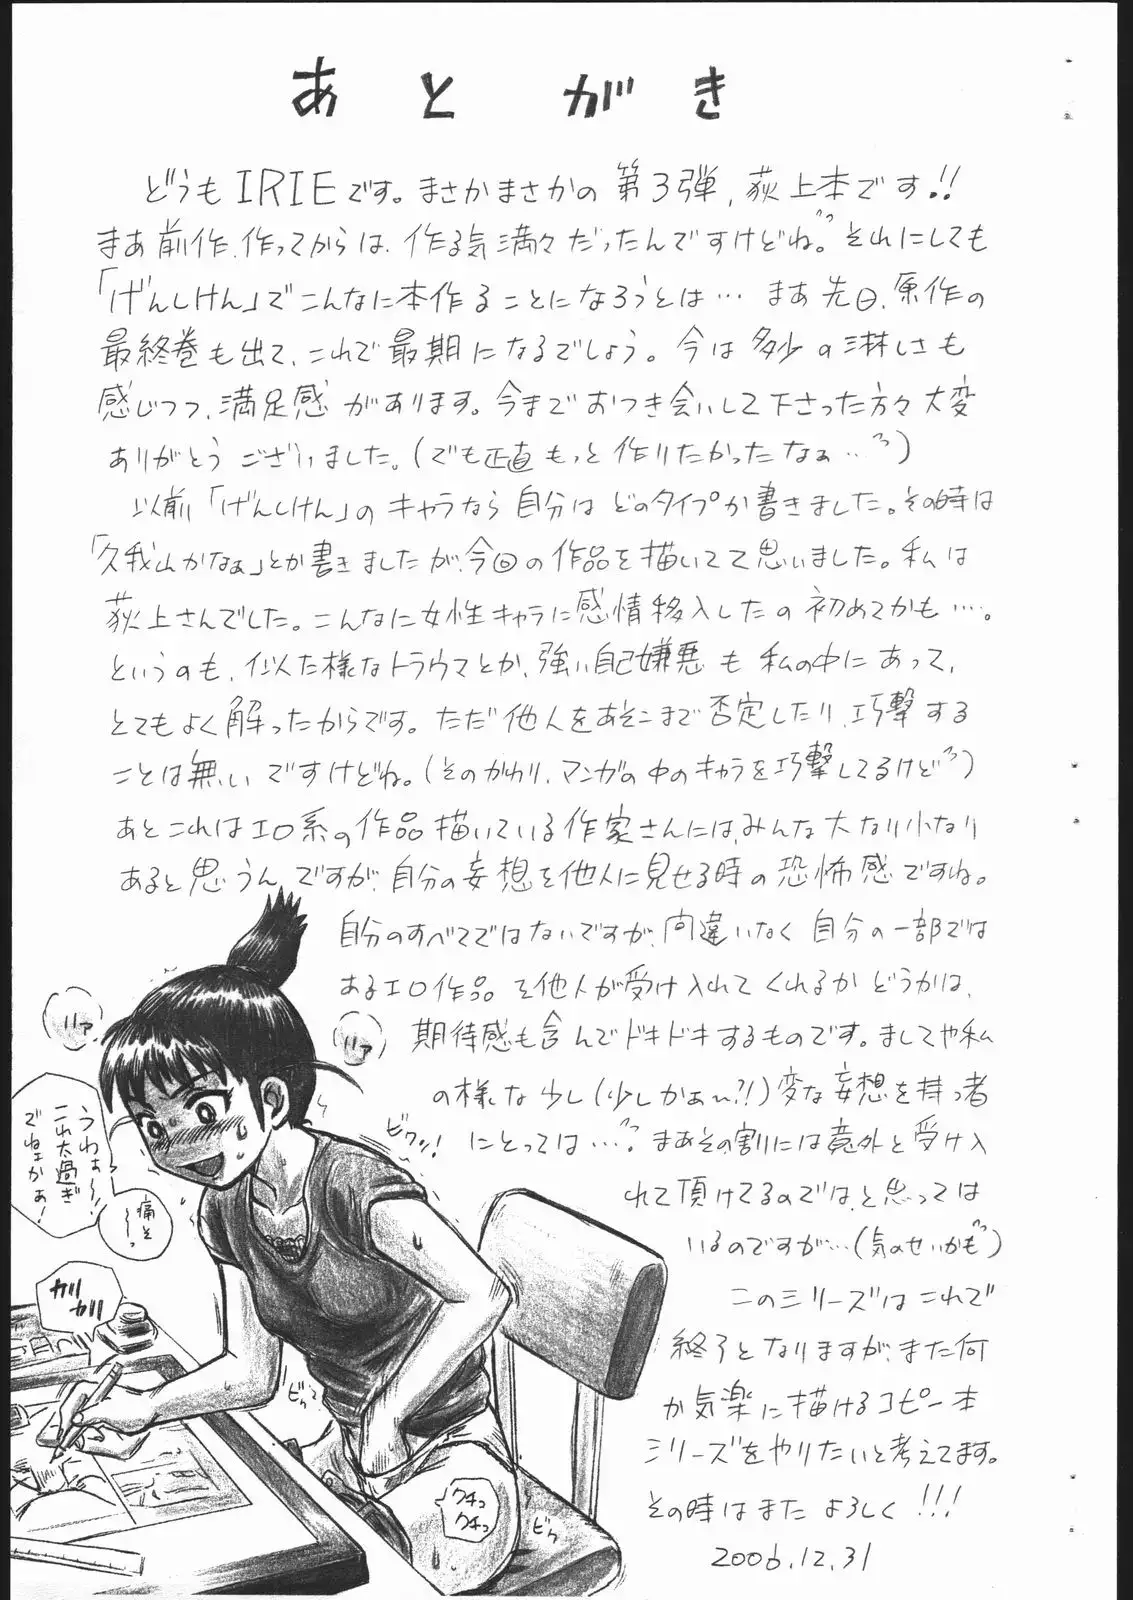 あとがき
どうもIRIEです。まさかまさかの第3弾、荻上本です!!
まあ前作、作ってからは、作る気満々だったんですけどね。それにしても
「げんしけん」でこんなに本作ることになろうとは… まあ先日、原作の
最終巻も出て、これで最期になるでしょう。今は多少の淋しさも
感じつつ、満足感があります。今までおつき会いして下さった方々大変
ありがとうございました。(でも正直もっと作りたかったなぁ…)
以前「げんしけん」のキャラなら自分はどのタイプか書きました。その時は
「久我山かなぁ」とか書きましたが、今回の作品を描いてて思いました。私は
荻上さんでした。こんなに女性キャラに感情移入したの初めてかも…。
というのも、似た様なトラウマとか、強い自己嫌悪も私の中にあって、
とてもよく解ったからです。ただ他人をあそこまで否定したり、巧撃する
ことは無いですけどね。(そのかわり、マンガの中のキャラを巧撃してるけど)
あとこれはエロ系の作品描いている作家さんには、みんな大なり小なり
あると思うんですが、自分の妄想を他人に見せる時の恐怖感ですね。
自分のすべてではないですが、間違いなく自分の一部では
あるエロ作品を他人が受け入れてくれるかどうかは、
期待感も含んでドキドキするものです。ましてや私
の様な少し(少しかぁ〜?!)変な妄想を持つ者
にとっては…。まあその割には意外と受け入
れて頂けてるのでは、と思っては
いるのですが…(気のせいかも)
このシリーズはこれで
終了となりますが、また何
か気楽に描けるコピー本
シリーズをやりたいと考えてます。
その時はまたよろしく!!!
2006.12.31
ハァ
ハァ
うわぁ〜!
これ太過ぎ
でねェかぁ!
痛そ
〜〜っ
ビクッ!
カリ
カリ
ビクッ
クチュッ
クチュッ
ビクッ